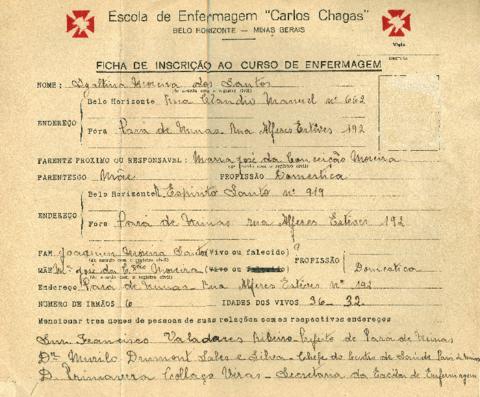 Escola de Enfermagem "Carlos Chagas"
BELO HORIZONTE — MINAS GERAIS
Visto
FICHA DE INSCRIÇÃO AO CURSO DE ENFERMAGEM
NOME: Moreira dos Santos
(de acordo com o registro civil)
Belo Horizonte Rua Claudio Manuel nº 662
ENDEREÇO
Fora Pará de Minas Rua Alferes Estéves 192
PARENTE PROXIMO OU RESPONSAVEL: Maria José da Conceição Moreira
PARENTESCO Mãe PROFISSÃO Domestica
Belo Horizonte R Espirito Santo nº 919
ENDEREÇO
Fora Pará de Minas rua Alferes Esteves 192
PAE Joaquim Moreira Santos (Vivo ou falecido) PROFISSÃO
(de acordo com o registro civil)
MÃE Mª José da Cção Moreira (Vivo ou falecido) Domestica
(de acordo com o registro civil)
Endereço Pará de Minas - Rua Alferes Estéves nº 192
NÚMERO DE IRMÃOS 6 IDADES DOS VIVOS 36 - 32
Mencionar tres nomes de pessoas de suas relações com os respectivos endereços
Francisco Valadares Ribeiro - Prefeito de Pará de Minas
Dr. Murilo Drumont Sales e Silva - Chefe do Centro de Saúde Pará de Minas
D. Primavera Collaço Veras - Secretaria da Escola de Enfermagem